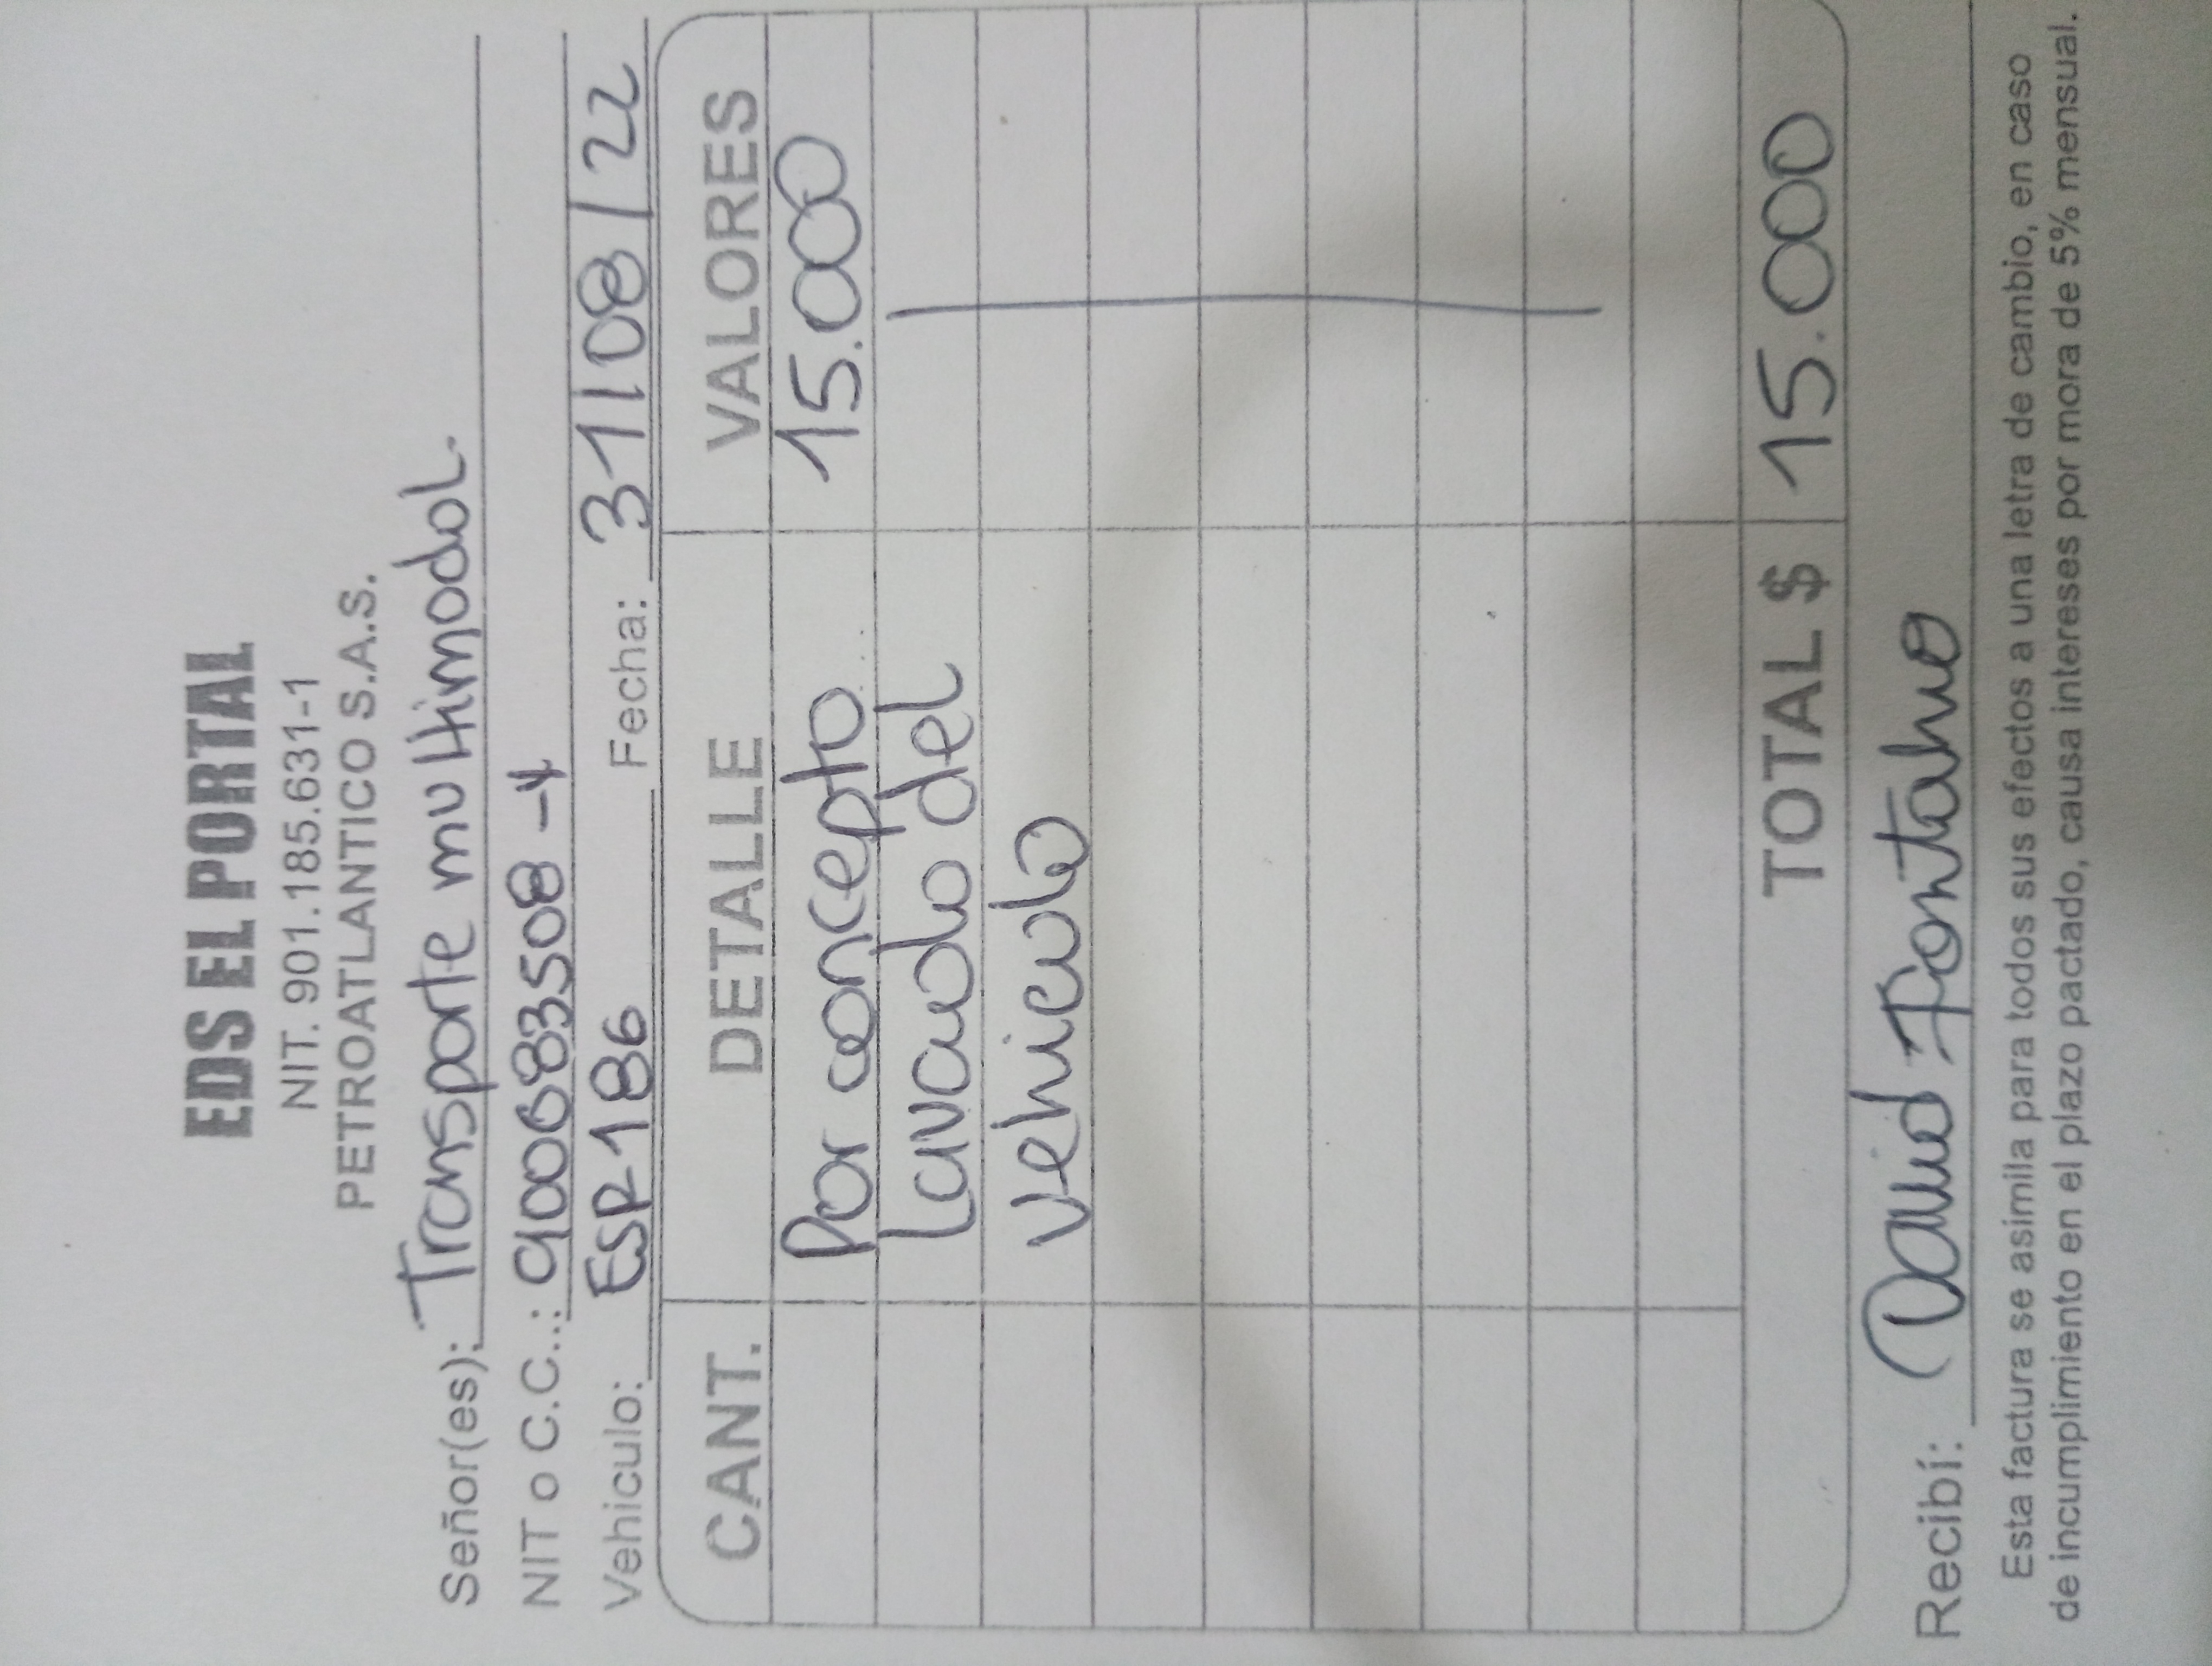 EDS EL PORTAL
NIT. 901.185.631-1
PETROATLANTICO S.A.S.
Señor(es): Transporte multimodal.
NIT o C.C..: 900883508-4
Vehiculo: ESR186 Fecha: 31/08/22
CANT. DETALLE VALORES
Por concepto 15.000
Lavado del
vehiculo
TOTAL $ 15.000
Recibí: David Fontalvo
Esta factura se asimila para todos sus efectos a una letra de cambio, en caso
de incumplimiento en el plazo pactado, causa intereses por mora de 5% mensual.